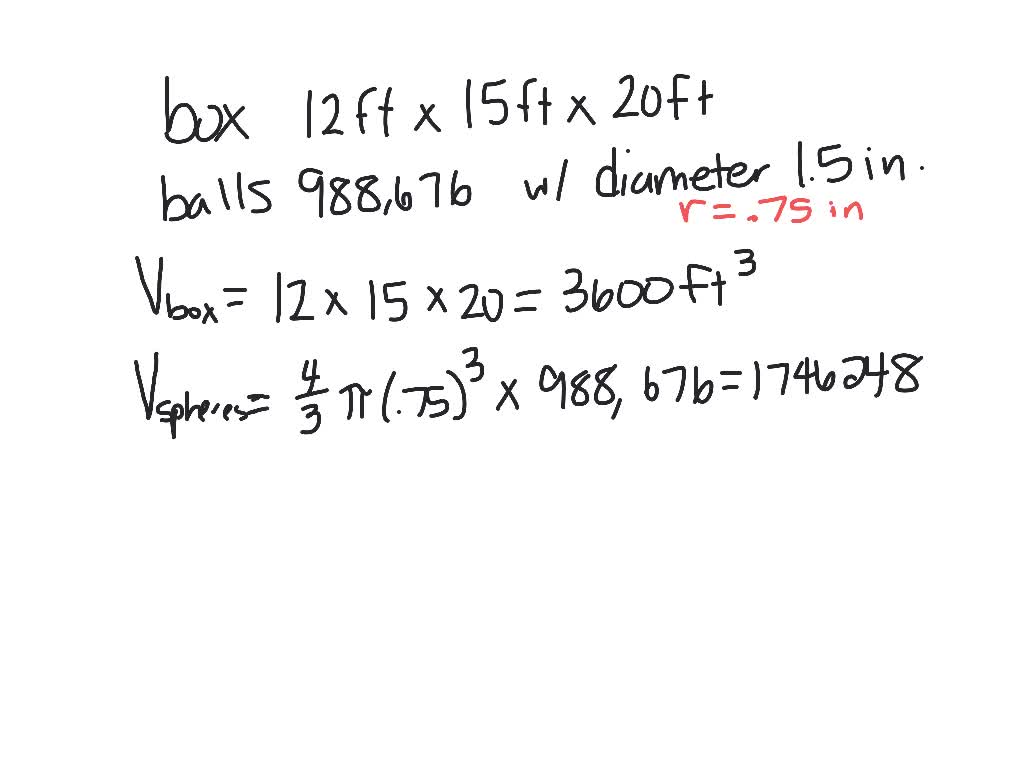 box 12ft x 15ft x 20ft
balls 988,676 w/ diameter 1.5 in.
r = .75 in
Vbox = 12 x 15 x 20 = 3600 ft³
Vspheres = 4/3 π(.75)³ x 988,676 = 1746248